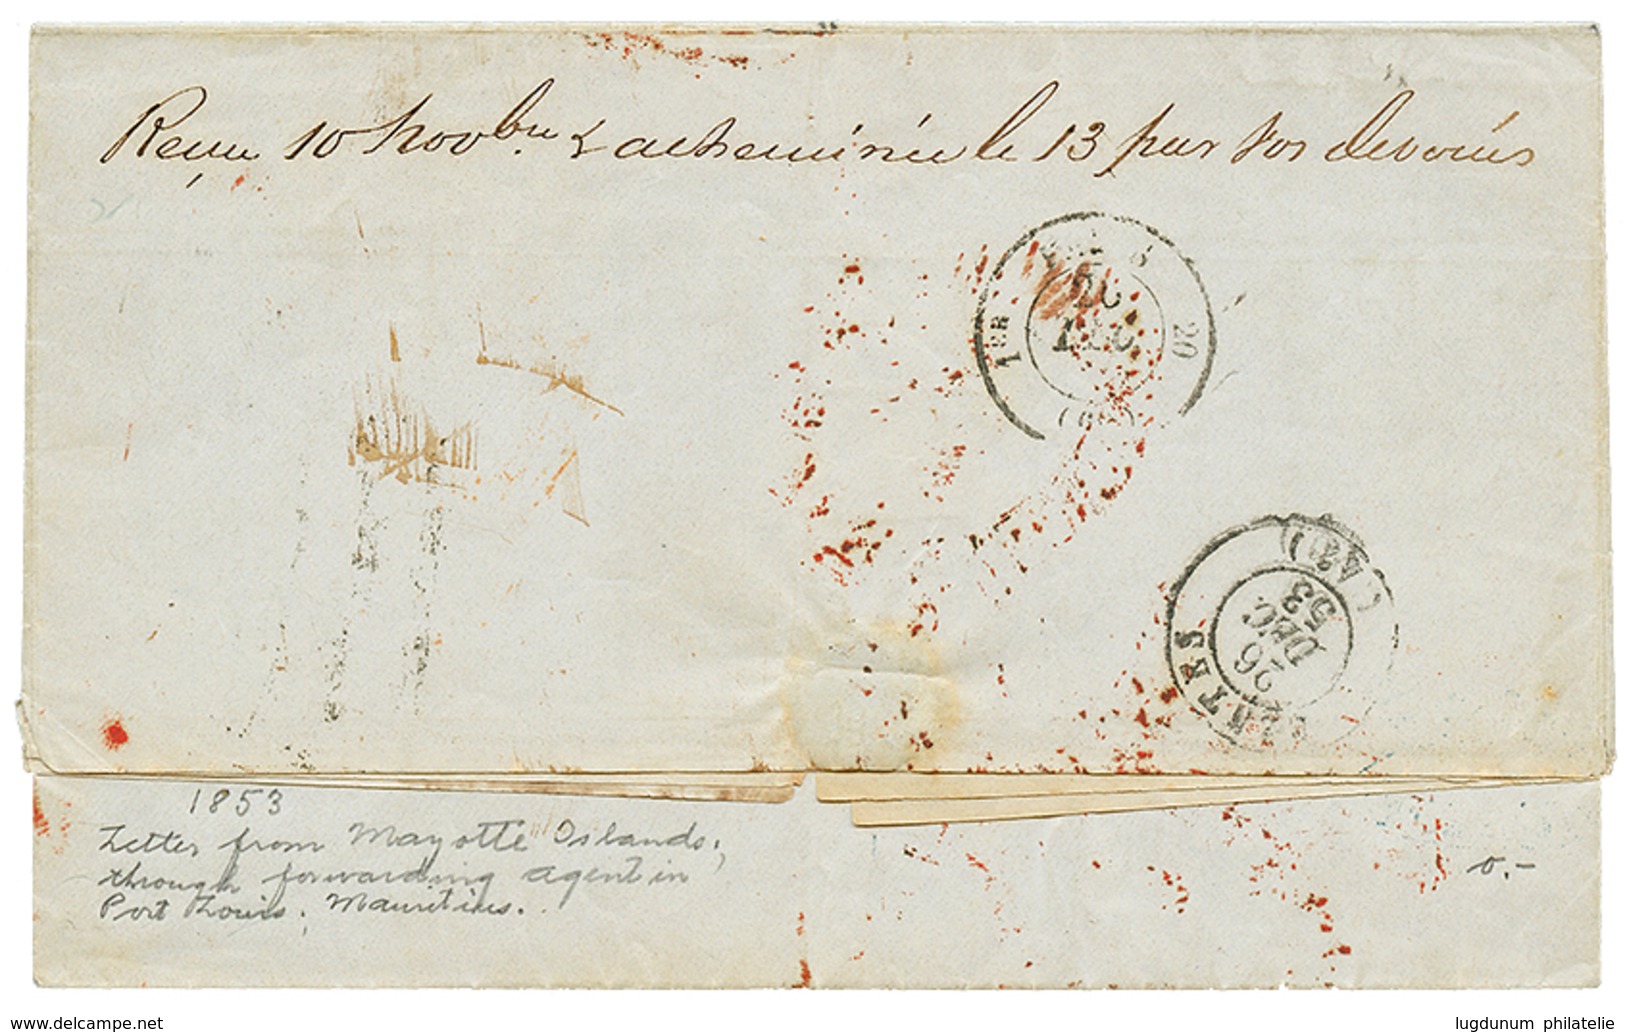 Reçu 10 Novbre & acheminée le 13 par vos dévoués
1ER
20
DEC.
(60)
NANTES
26
DEC.
53
(42)
1853
Letter from Mayotte Islands,
through forwarding agent in
Port Louis, Mauritius.
delcampe.net
lugdunum philatelie